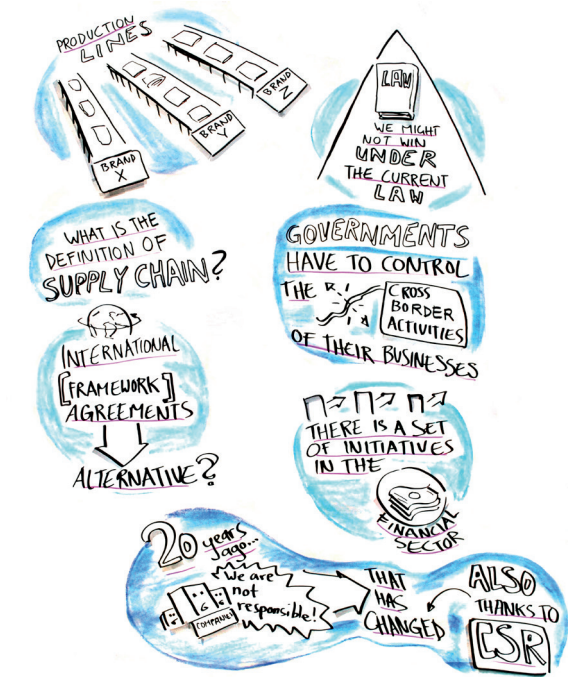 PRODUCTION
LINES
BRAND
X
BRAND
Y
BRAND
Z
LAW
WE MIGHT
NOT WIN
UNDER
THE CURRENT
LAW
WHAT IS THE
DEFINITION OF
SUPPLY CHAIN?
GOVERNMENTS
HAVE TO CONTROL
THE
CROSS
BORDER
ACTIVITIES
OF THEIR BUSINESSES
INTERNATIONAL
[FRAMEWORK]
AGREEMENTS
ALTERNATIVE?
THERE IS A SET
OF INITIATIVES
IN THE
FINANCIAL
SECTOR
20 years
ago...
We are
not
responsible!
COMPANIES
THAT
HAS
CHANGED
ALSO
THANKS TO
CSR